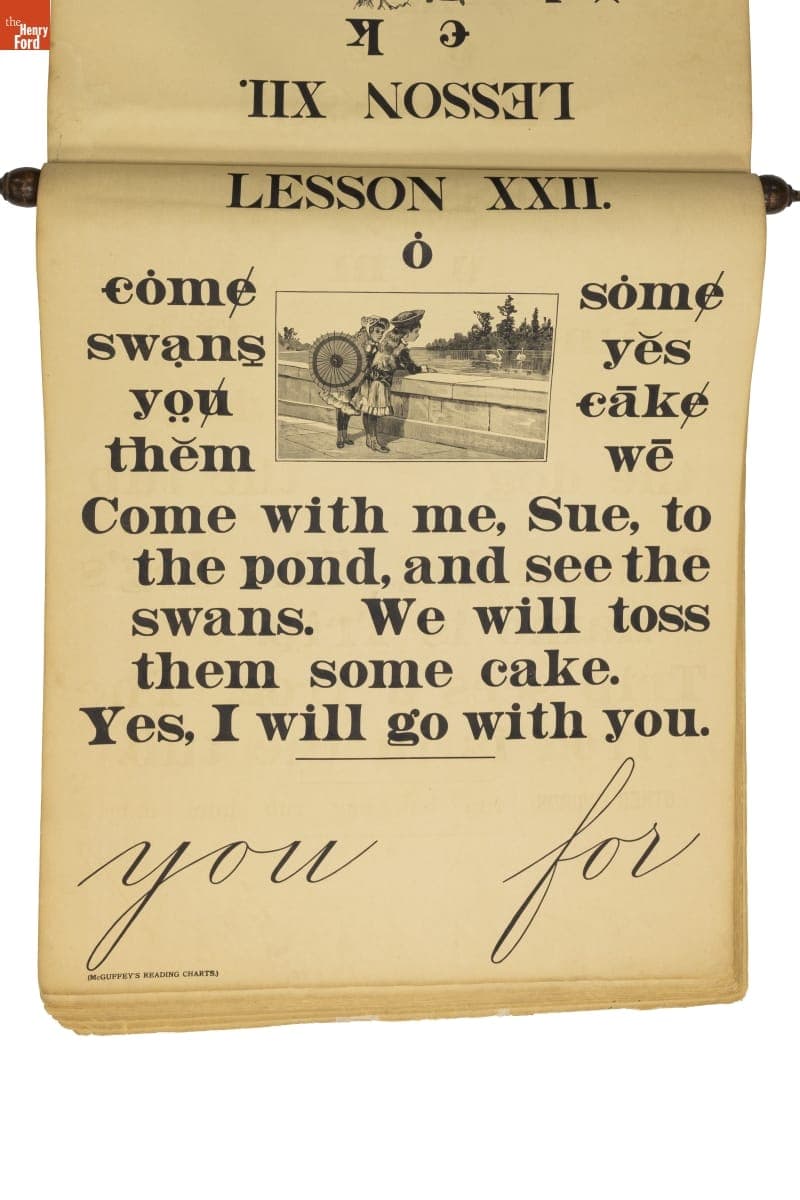 the
Henry
Ford
k c
LESSON XII.
LESSON XXII.
ȯ
cȯme̸
swạns̱
yo̤u̸
thĕm
sȯme̸
yĕs
cāke̸
wē
Come with me, Sue, to
the pond, and see the
swans. We will toss
them some cake.
Yes, I will go with you.
you for
(McGUFFEY'S READING CHARTS.)